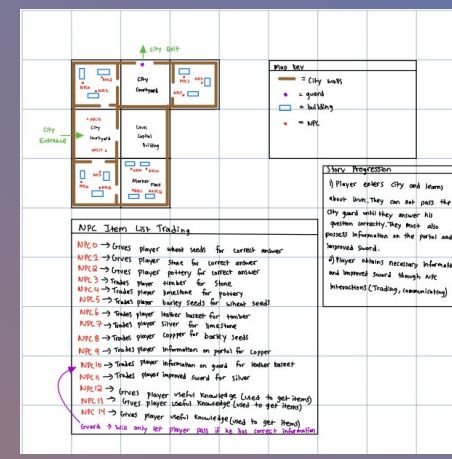 City Exit
City Courtyard
City Entrance
City Courtyard
Uruk Capital Building
Market Place
Map Key
= City walls
= guard
= building
= NPC
Story Progression
1) Player enters city and learns
about Uruk. They can not pass the
city guard until they answer his
question correctly. They must also
possess information on the portal and
improved sword.
2) Player obtains necessary
and improved sword through NPC
interactions (Trading, communicating)
NPC Item List Trading
NPC 0 → Gives player wheat seeds for correct answer
NPC 1 → Gives player stone for correct answer
NPC 2 → Gives player pottery for correct answer
NPC 3 → Trades player timber for stone
NPC 4 → Trades player limestone for pottery
NPC 5 → Trades player barley seeds for wheat seeds
NPC 6 → Trades player leather basket for timber
NPC 7 → Trades player silver for limestone
NPC 8 → Trades player copper for barley seeds
NPC 9 → Trades player information on portal for copper
NPC 10 → Trades player information on guard for leather basket
NPC 11 → Trades player improved sword for silver
NPC 12 → Gives player useful knowledge (used to get items)
NPC 13 → Gives player useful knowledge (used to get items)
NPC 14 → Gives player useful knowledge (used to get items)
Guard → Will only let player pass if he has correct information